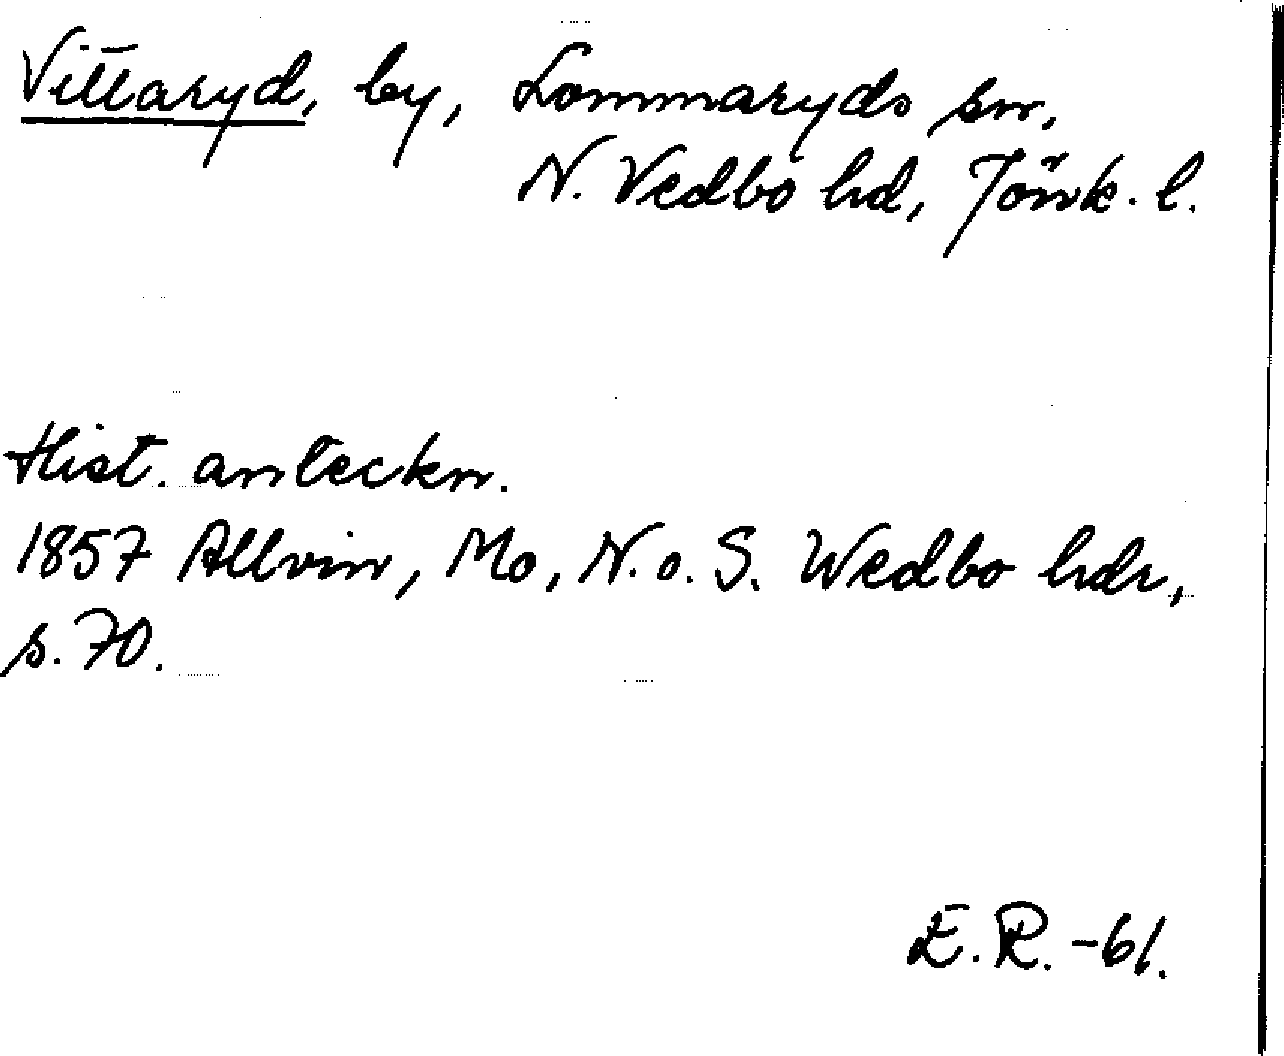 Vittaryd, by, Lommaryds sn,
N. Vedbo hd, Jönk. l.
Hist. anteckn.
1857 Allvin, Mo, N. o. S. Wedbo hdr,
s. 70.
E. R. -61.